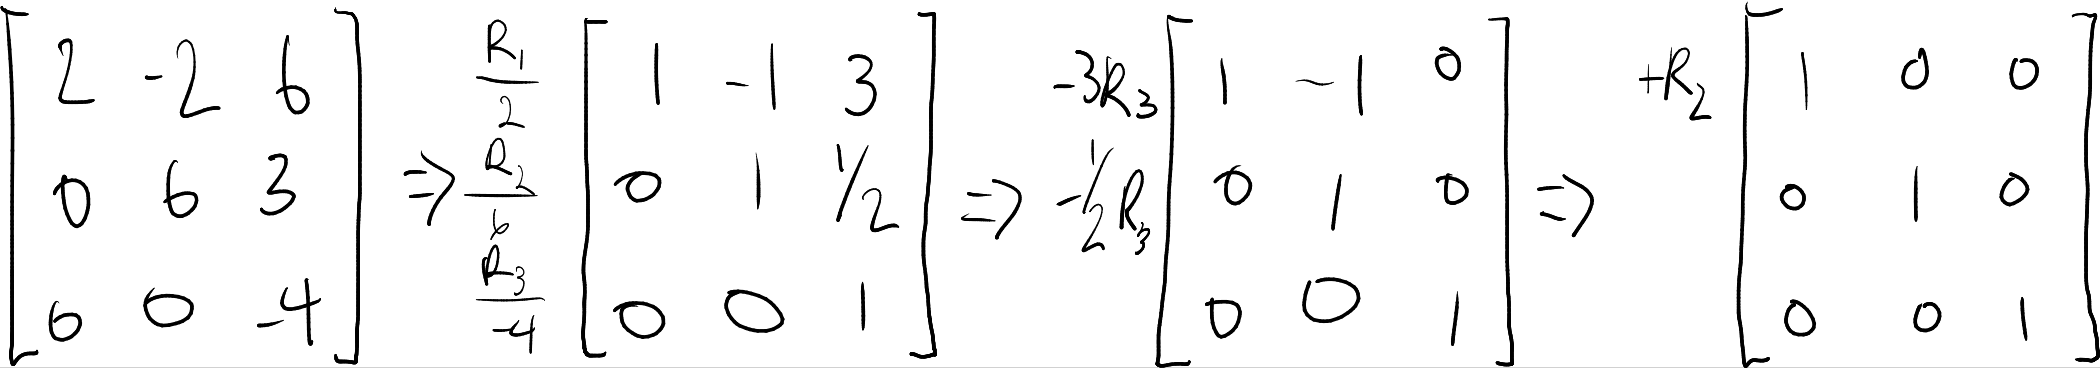 [2 -2 6; 0 6 3; 0 0 -4] ⇒ R₁/2, R₂/6, R₃/-4 [1 -1 3; 0 1 1/2; 0 0 1] ⇒ -3R₃, -1/2R₃ [1 -1 0; 0 1 0; 0 0 1] ⇒ +R₂ [1 0 0; 0 1 0; 0 0 1]